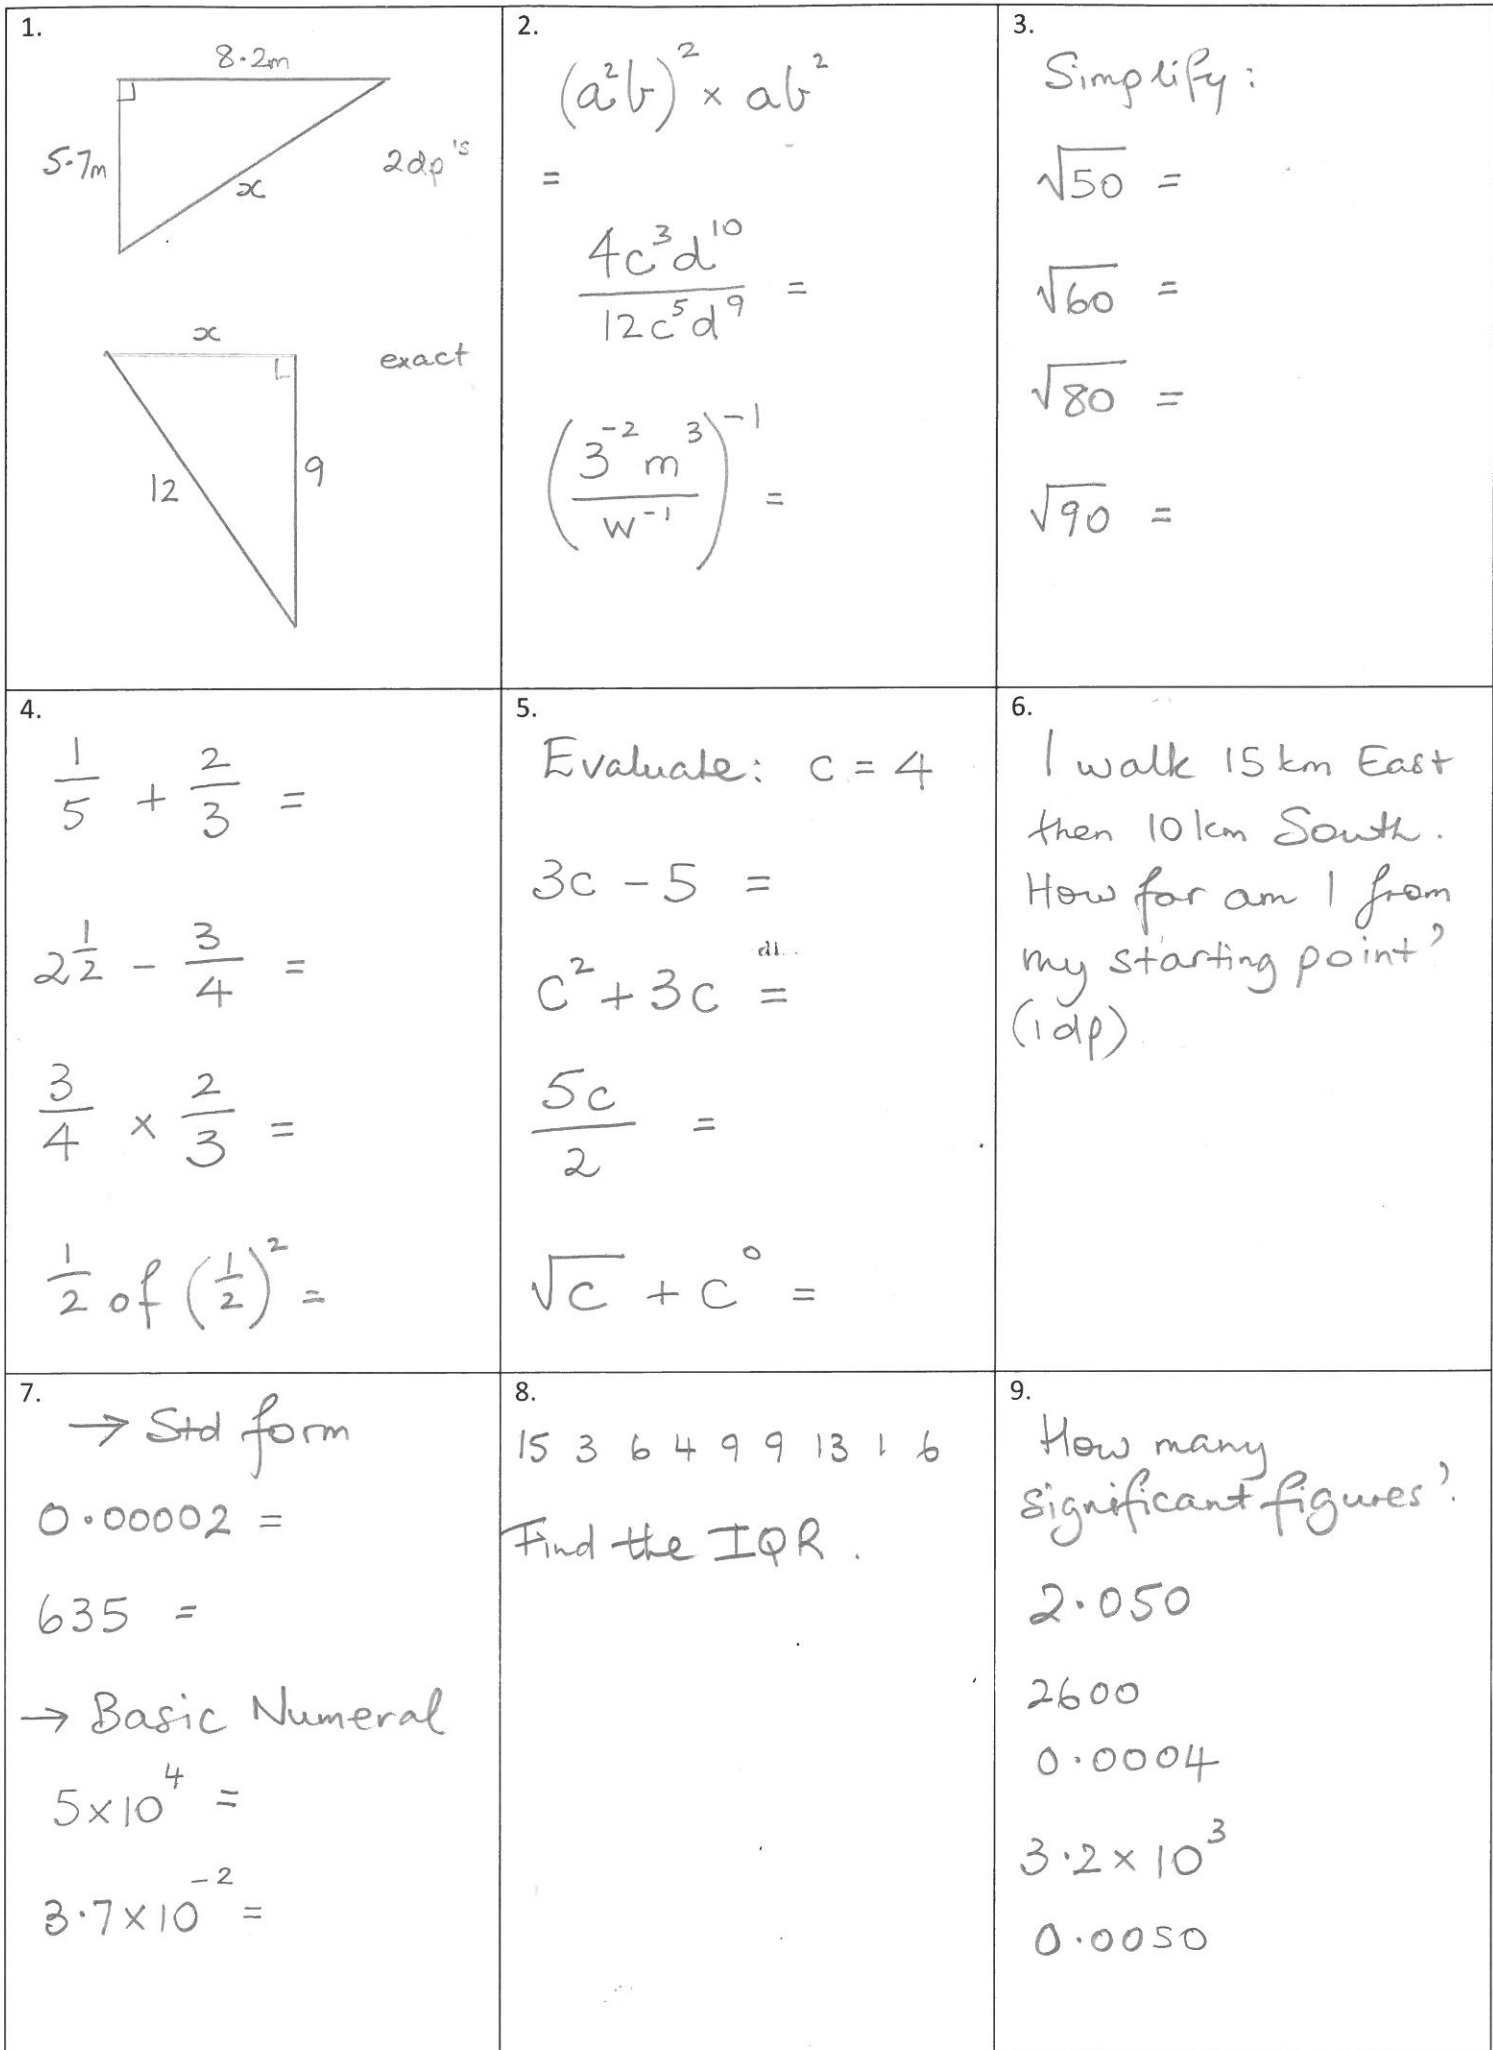 1.
8.2m
5.7m
x
2dp's
x
exact
12
9
2.
(a²b)² × ab²
=
4c³d¹⁰
12c⁵d⁹ =
(3⁻²m³
w⁻¹)⁻¹ =
3.
Simplify:
√50 =
√60 =
√80 =
√90 =
4.
1/5 + 2/3 =
2 1/2 - 3/4 =
3/4 × 2/3 =
1/2 of (1/2)² =
5.
Evaluate: c = 4
3c - 5 =
c² + 3c =
5c/2 =
√c + c⁰ =
6.
I walk 15 km East
then 10 km South.
How far am I from
my starting point?
(1dp)
7.
→ Std form
0.00002 =
635 =
→ Basic Numeral
5×10⁴ =
3.7×10⁻² =
8.
15 3 6 4 9 9 13 1 6
Find the IQR.
9.
How many
significant figures?
2.050
2600
0.0004
3.2×10³
0.0050